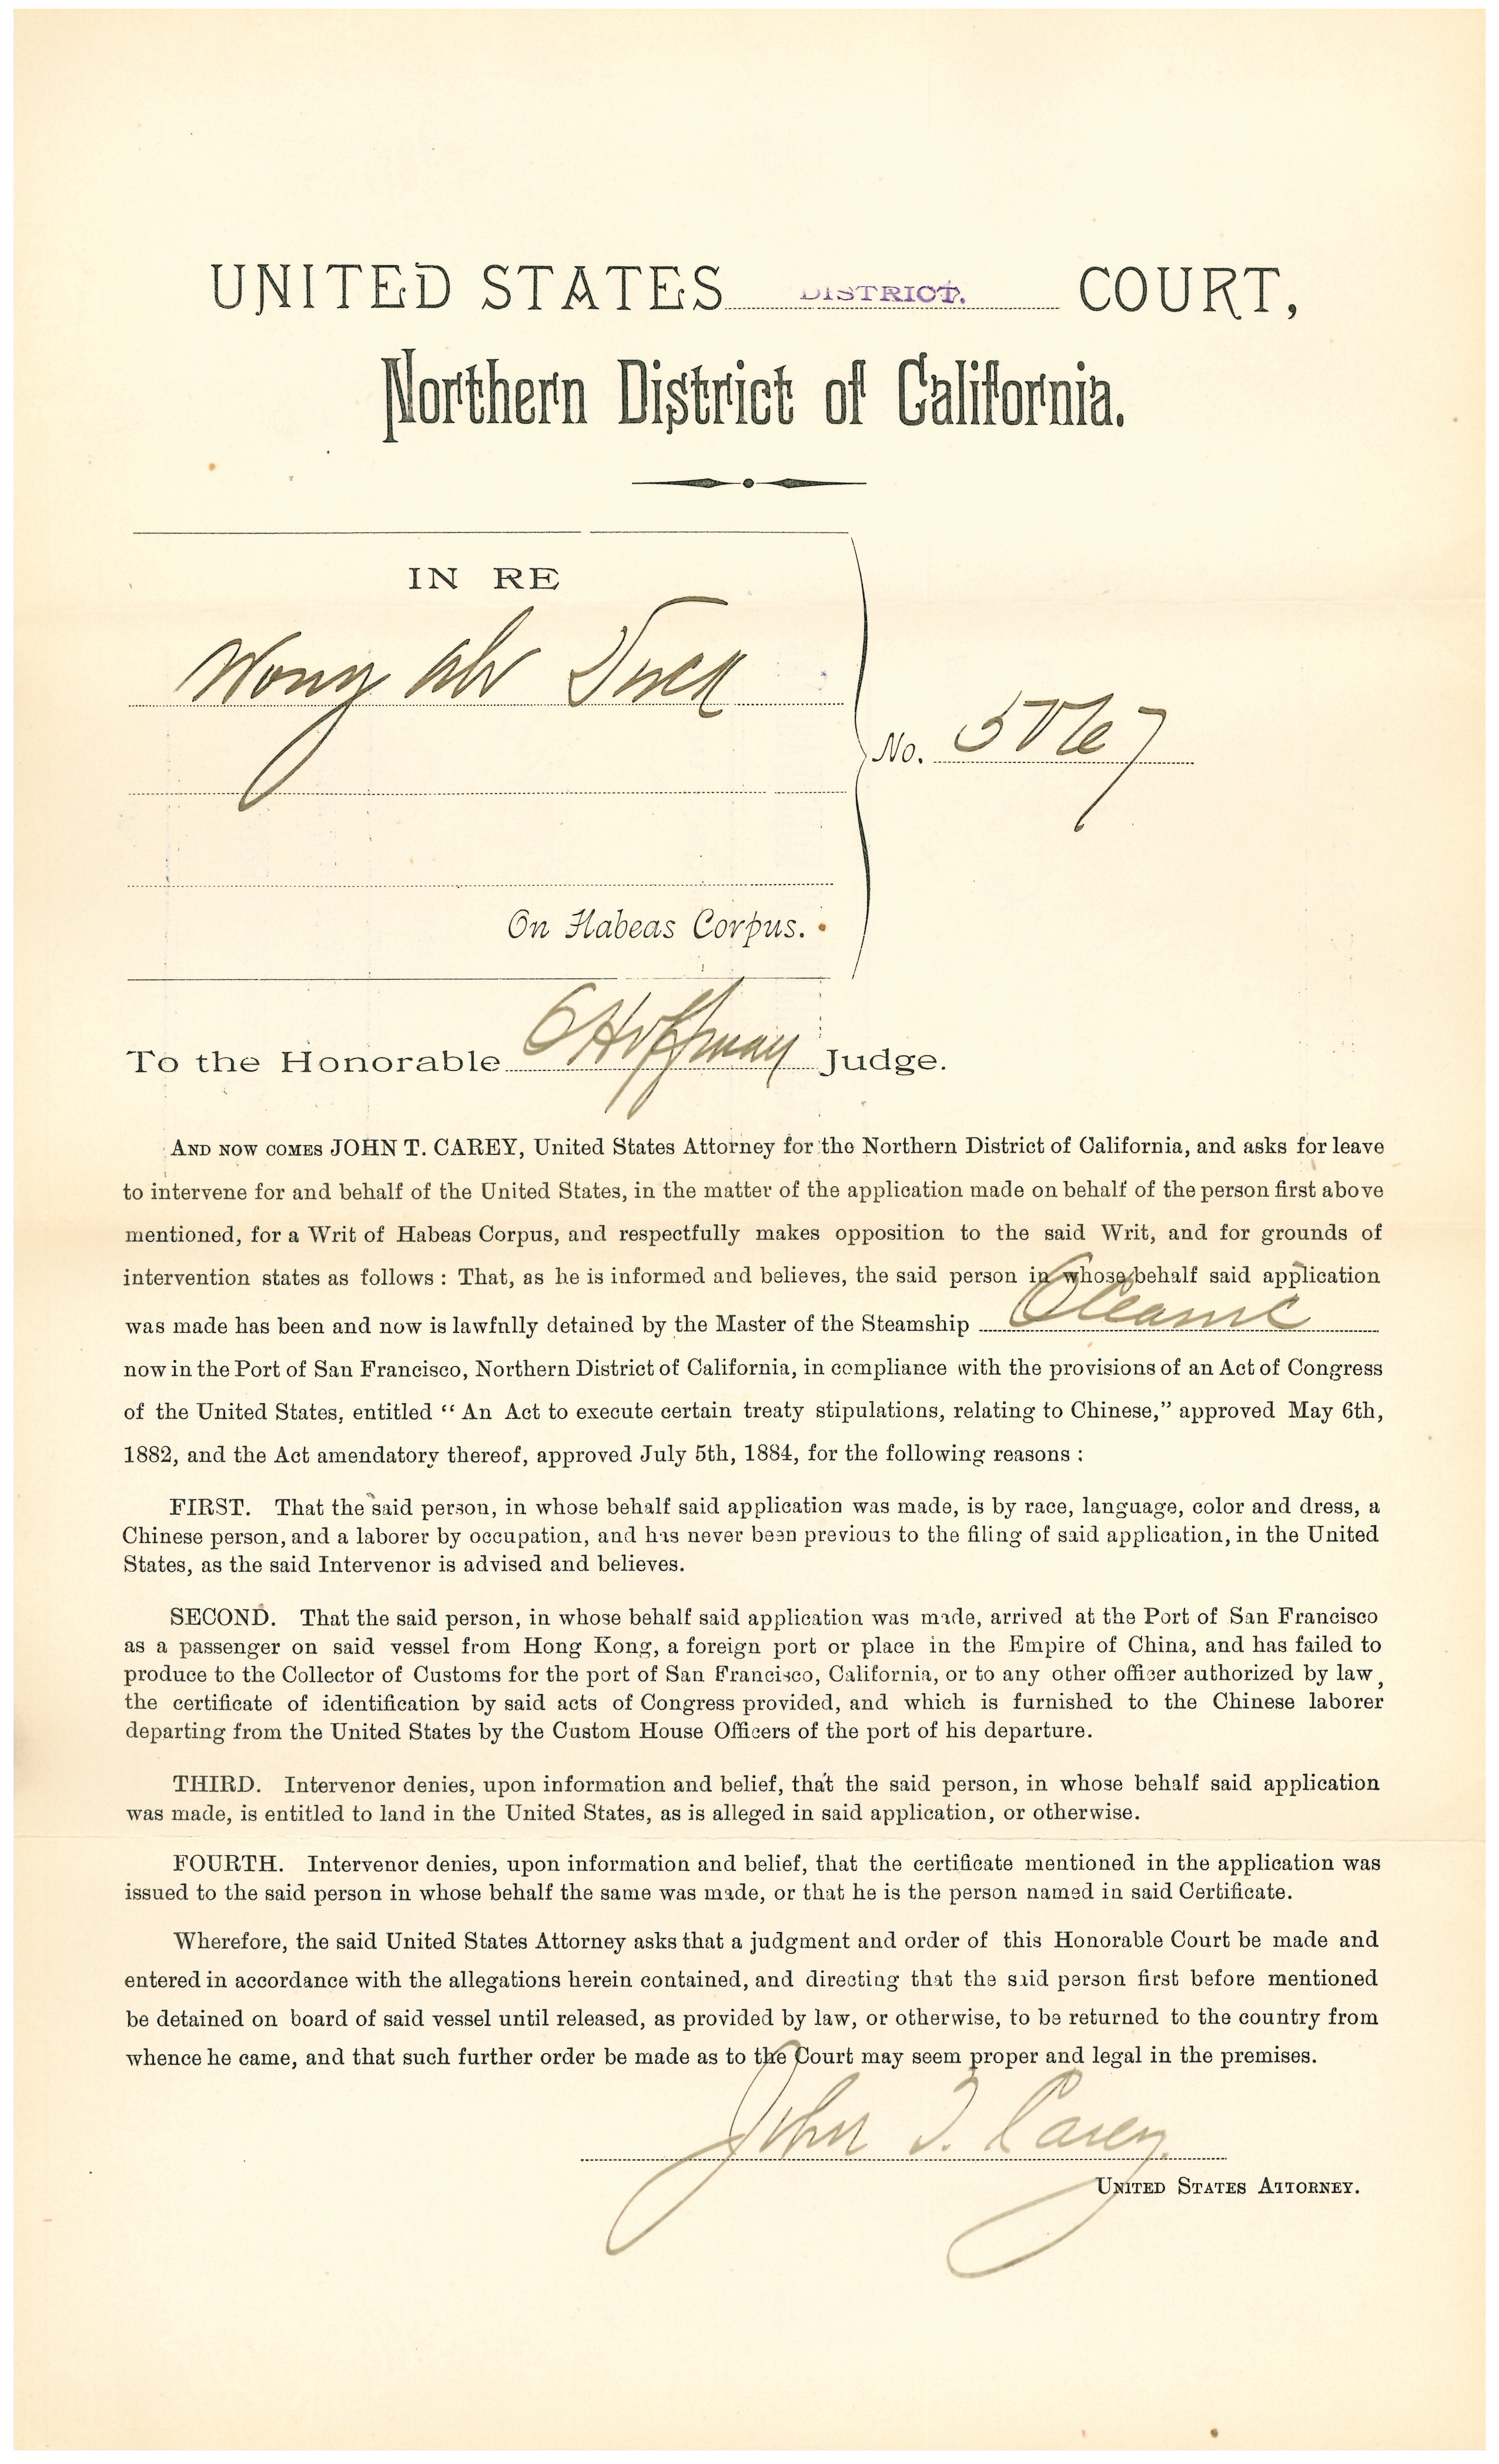 UNITED STATES DISTRICT. COURT,
Northern District of California.
IN RE
Wong Ah Tuck
No.
On Habeas Corpus.
To the Honorable O Hoffman Judge.
AND NOW COMES JOHN T. CAREY, United States Attorney for the Northern District of California, and asks for leave
to intervene for and behalf of the United States, in the matter of the application made on behalf of the person first above
mentioned, for a Writ of Habeas Corpus, and respectfully makes opposition to the said Writ, and for grounds of
intervention states as follows : That, as he is informed and believes, the said person in whose behalf said application
was made has been and now is lawfully detained by the Master of the Steamship Oceanic
now in the Port of San Francisco, Northern District of California, in compliance with the provisions of an Act of Congress
of the United States, entitled “ An Act to execute certain treaty stipulations, relating to Chinese,” approved May 6th,
1882, and the Act amendatory thereof, approved July 5th, 1884, for the following reasons :
FIRST. That the said person, in whose behalf said application was made, is by race, language, color and dress, a
Chinese person, and a laborer by occupation, and has never been previous to the filing of said application, in the United
States, as the said Intervenor is advised and believes.
SECOND. That the said person, in whose behalf said application was made, arrived at the Port of San Francisco
as a passenger on said vessel from Hong Kong, a foreign port or place in the Empire of China, and has failed to
produce to the Collector of Customs for the port of San Francisco, California, or to any other officer authorized by law,
the certificate of identification by said acts of Congress provided, and which is furnished to the Chinese laborer
departing from the United States by the Custom House Officers of the port of his departure.
THIRD. Intervenor denies, upon information and belief, that the said person, in whose behalf said application
was made, is entitled to land in the United States, as is alleged in said application, or otherwise.
FOURTH. Intervenor denies, upon information and belief, that the certificate mentioned in the application was
issued to the said person in whose behalf the same was made, or that he is the person named in said Certificate.
Wherefore, the said United States Attorney asks that a judgment and order of this Honorable Court be made and
entered in accordance with the allegations herein contained, and directing that the said person first before mentioned
be detained on board of said vessel until released, as provided by law, or otherwise, to be returned to the country from
whence he came, and that such further order be made as to the Court may seem proper and legal in the premises.
John T. Carey.
UNITED STATES ATTORNEY.